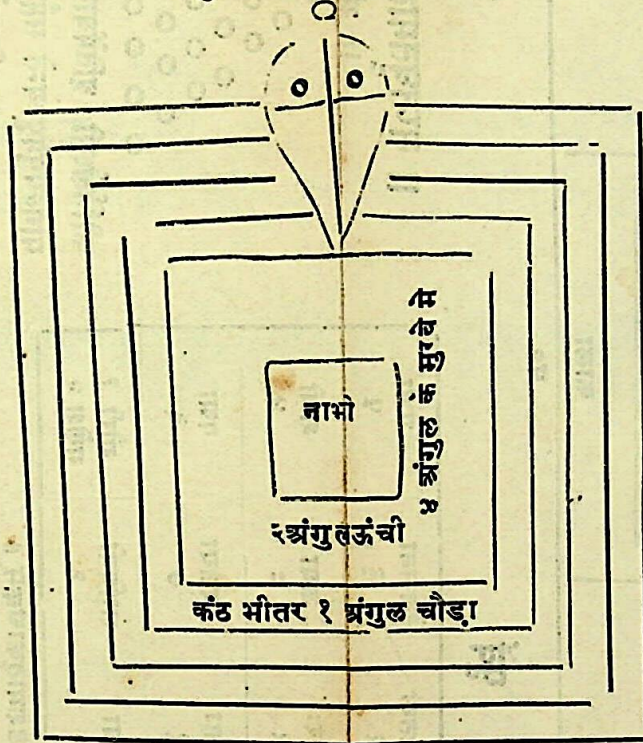 नाभो
४ अंगुल के मुरवे में
२अंगुलऊंची
कंठ भीतर १ अंगुल चौड़ा